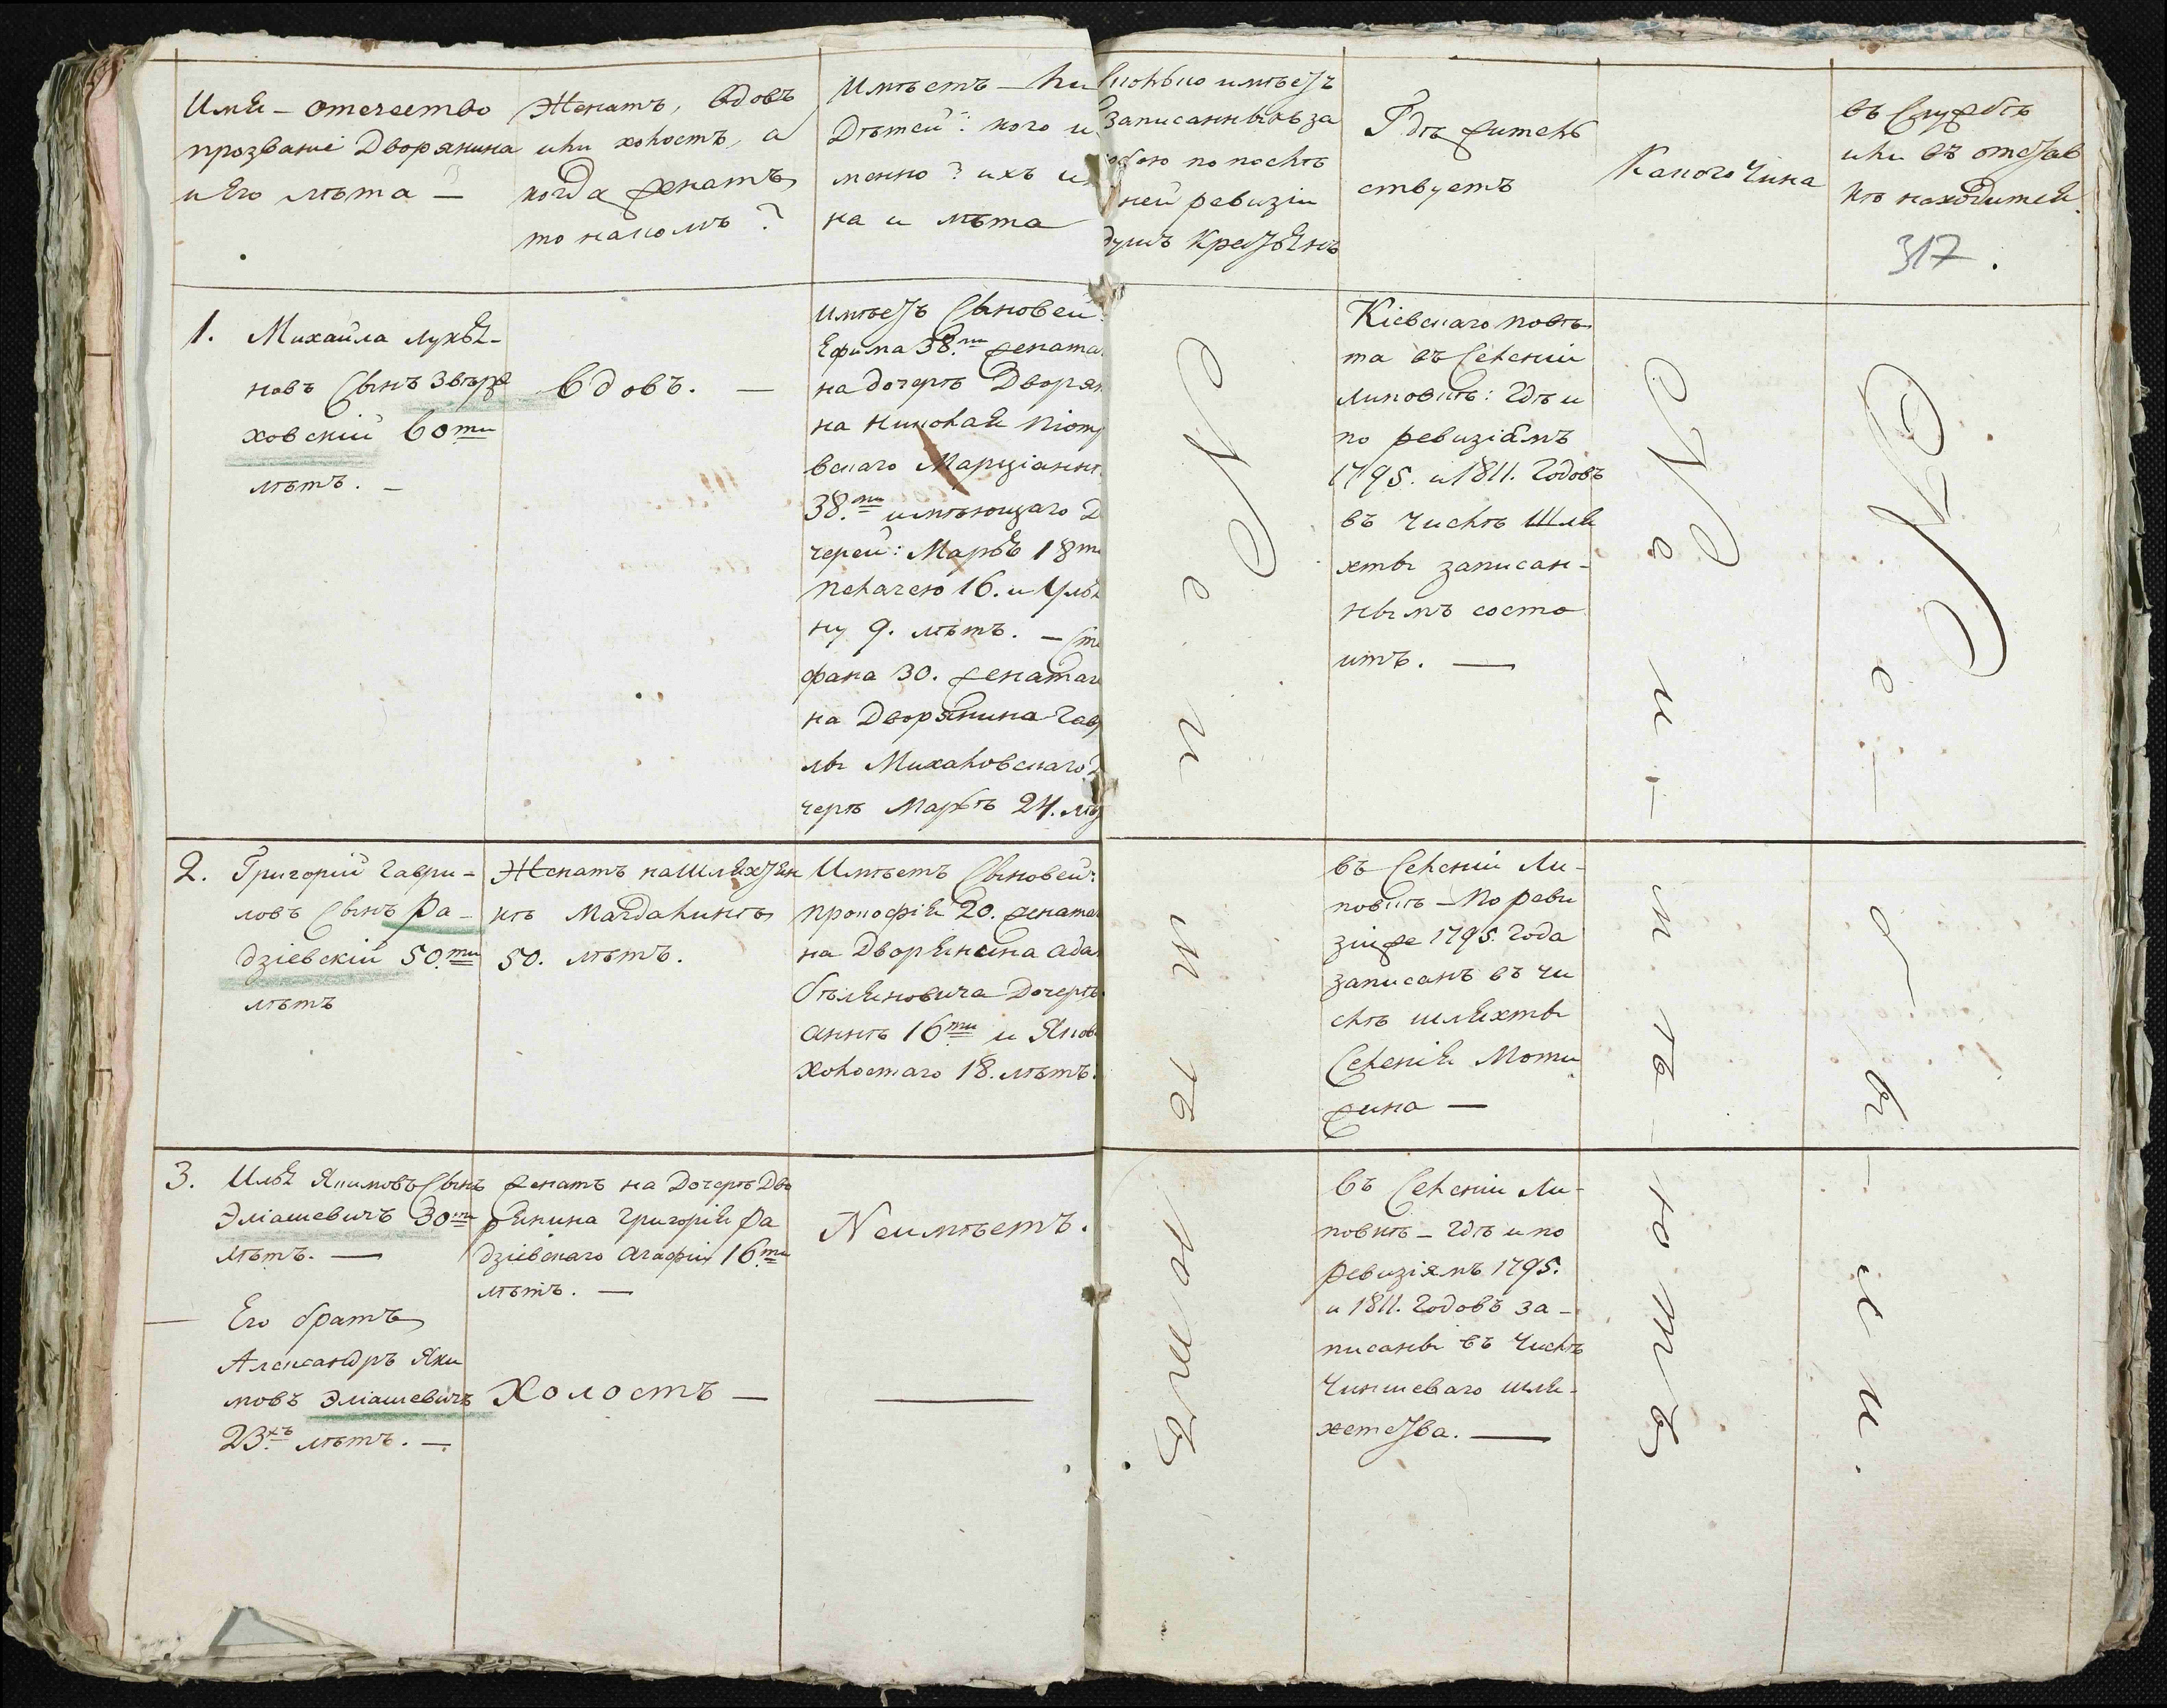 Имя – отечество
прозваніе Дворянина
и Его лѣта —
Женатъ, вдовъ
или холостъ, а
когда женатъ,
то накомъ ?
Имѣетъ – ли
Дѣтей: кого и
менно ? ихъ и
на и лѣта
сколько имѣетъ
записанныхъ за
собою по послѣ
дней ревизіи
душъ Крестьянъ
Гдѣ жител
ствуетъ
Какого Чина
въ Службѣ
или въ отстав
кѣ находится.
317.
1. Михайла Лукья-
новъ Сынъ Звѣрже
ховскій 60ти
лѣтъ. —
вдовъ. —
имѣетъ Сыновей
Ефима 38.ми женатаг
на дочерѣ Дворян
на Николая Піот
вскаго Марціаннѣ
38.ми имѣющаго Д
черей: Марью 18ти
Пелагею 16. и Улья
ну 9. лѣтъ. — Сте
фана 30. женатаг
на Дворянина Гав
лы Михаловскаго д
черѣ Марѣѣ 24. лѣт
Не имѣетъ
Кіевскаго повѣ
та въ Селеніи
Липовкѣ: Гдѣ и
по ревизіямъ
1795. и 1811. Годовъ
въ Числѣ Шля
хты записан-
нымъ состо
итъ. —
Не имѣетъ
Не
2. Григорій Гаври-
ловъ Сынъ Ра-
дзіевскій 50.ти
лѣтъ
Женатъ на Шляхтян
кѣ Магдалинѣ
50. лѣтъ.
Имѣетъ Сыновей:
Прокофія 20. жената
на Дворянина Ада
бѣляновича Дочерѣ
Аннѣ 16ти и Якова
Холостаго 18. лѣтъ.
въ Селеніи Ли-
повкѣ – По реви
зіиже 1795. Года
записанъ въ чи
слѣ шляхты
Селенія Моти
жина —
3. Илья Якимовъ Сынъ
Эліашевичъ 30ти
лѣтъ. —
женатъ на Дочерѣ Дво
рянина Григорія Ра
дзіевскаго Агафіи 16ти
лѣтъ. —
Неимѣетъ.
въ Селеніи Ли-
повкѣ – Гдѣ и по
ревизіямъ 1795.
и 1811. Годовъ за-
писаны въ Числѣ
Чиншеваго шля-
хетства. —
Его братъ
Александръ Яки
мовъ Эліашевичъ
23хъ лѣтъ. —
Холостъ —